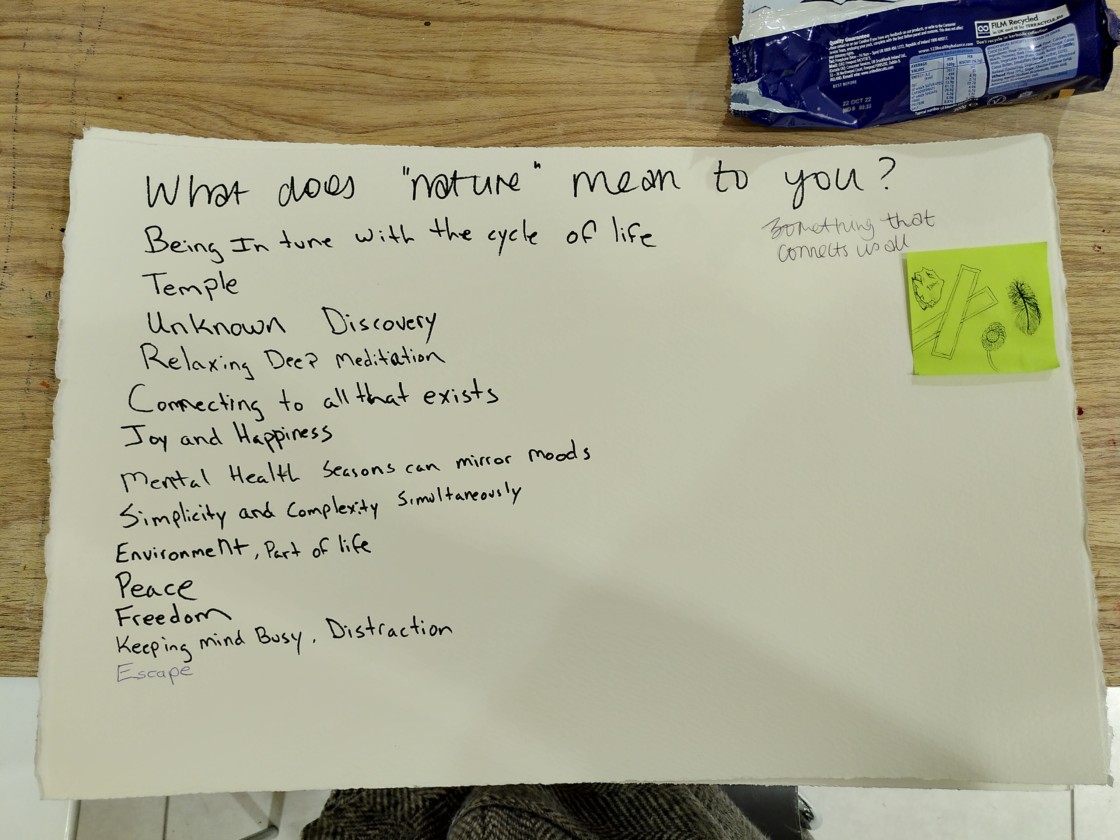 What does "nature" mean to you?
Being In tune with the cycle of life
Something that
connects us all
Temple
Unknown Discovery
Relaxing Deep Meditation
Connecting to all that exists
Joy and Happiness
Mental Health Seasons can mirror moods
Simplicity and Complexity Simultaneously
Environment, Part of life
Peace
Freedom
Keeping mind Busy, Distraction
Escape
Quality Guarantee
FILM Recycled
BEST BEFORE
22 OCT 22